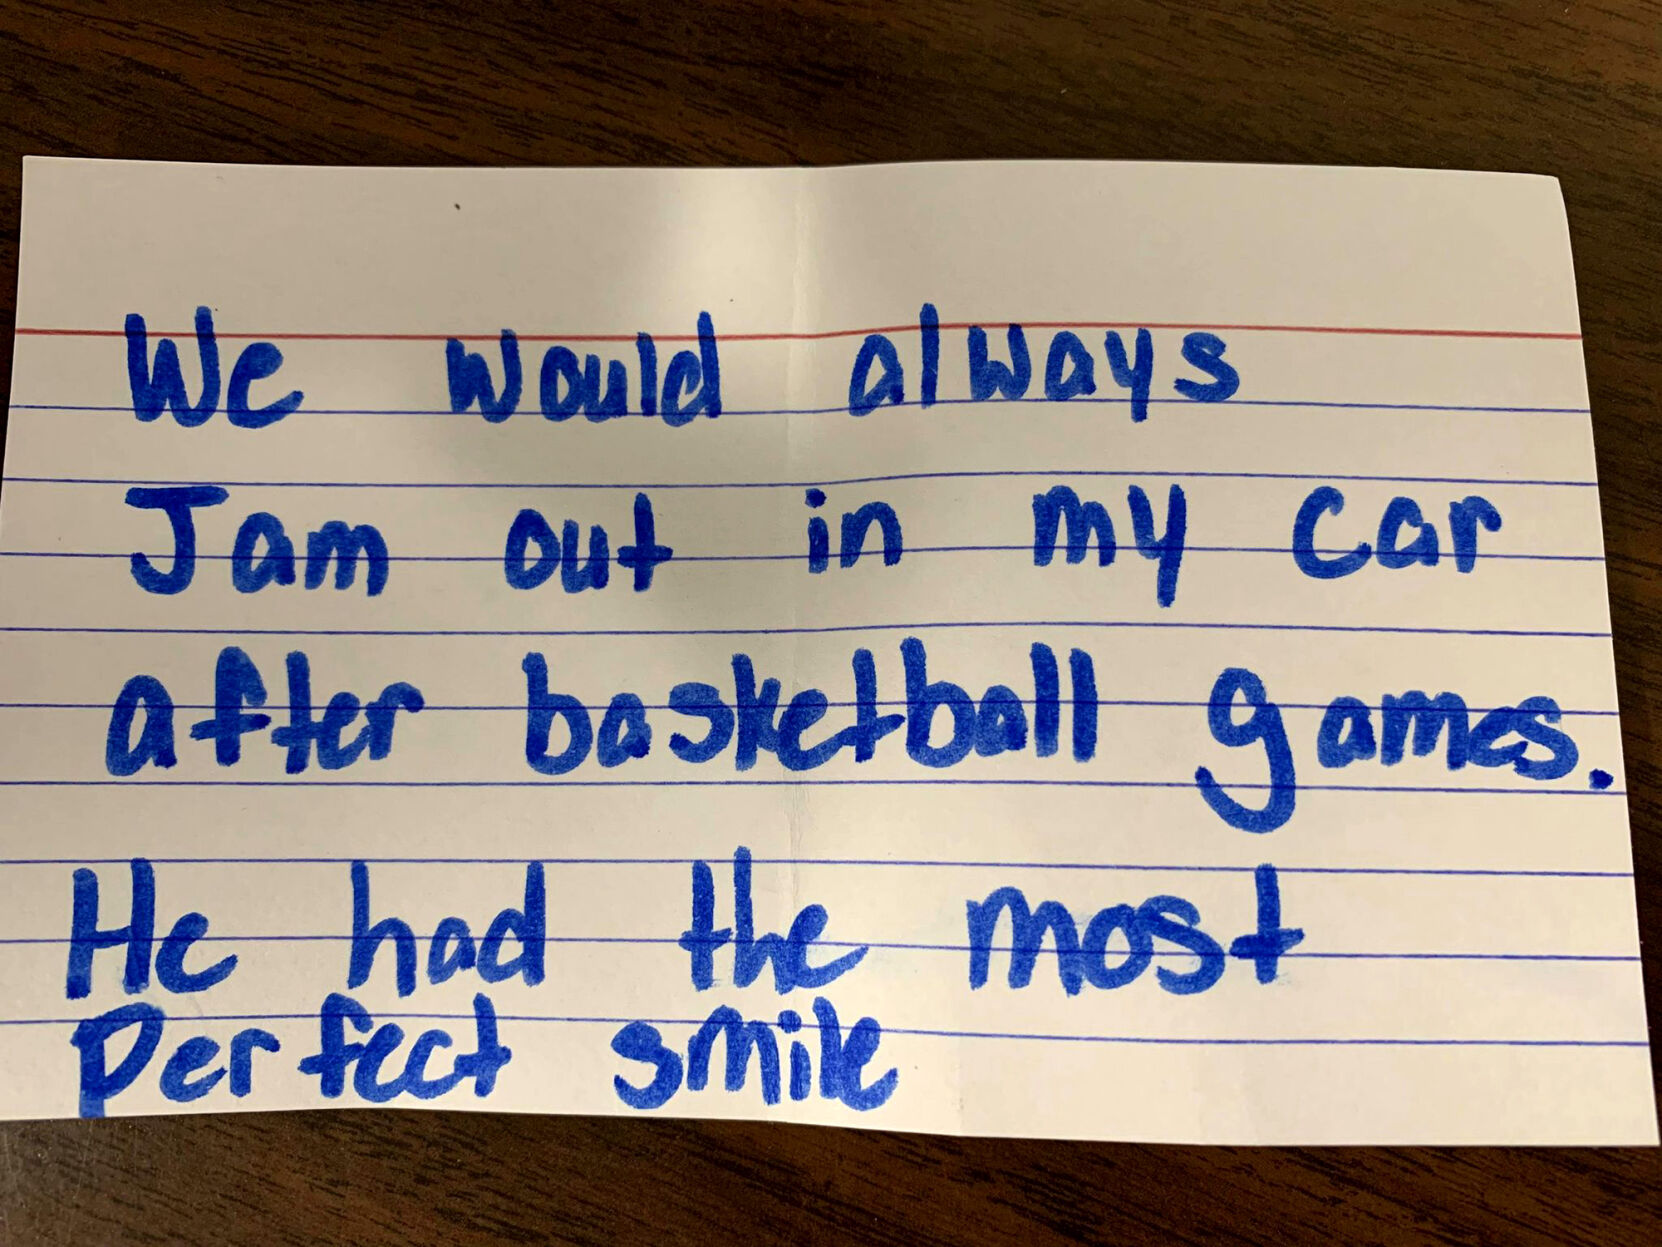 We would always
Jam out in my car
after basketball games.
He had the most
Perfect smile